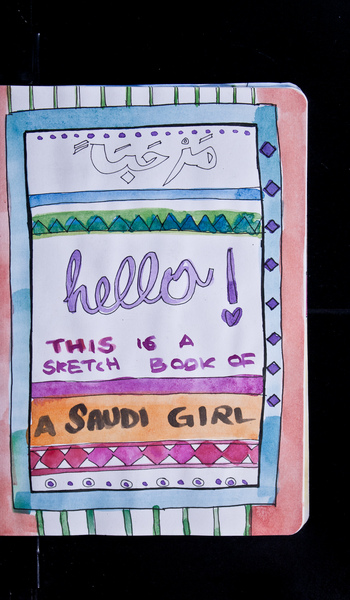 مَرْحَبَاً
hello!
THIS IS A
SKETCH BOOK OF
A SAUDI GIRL